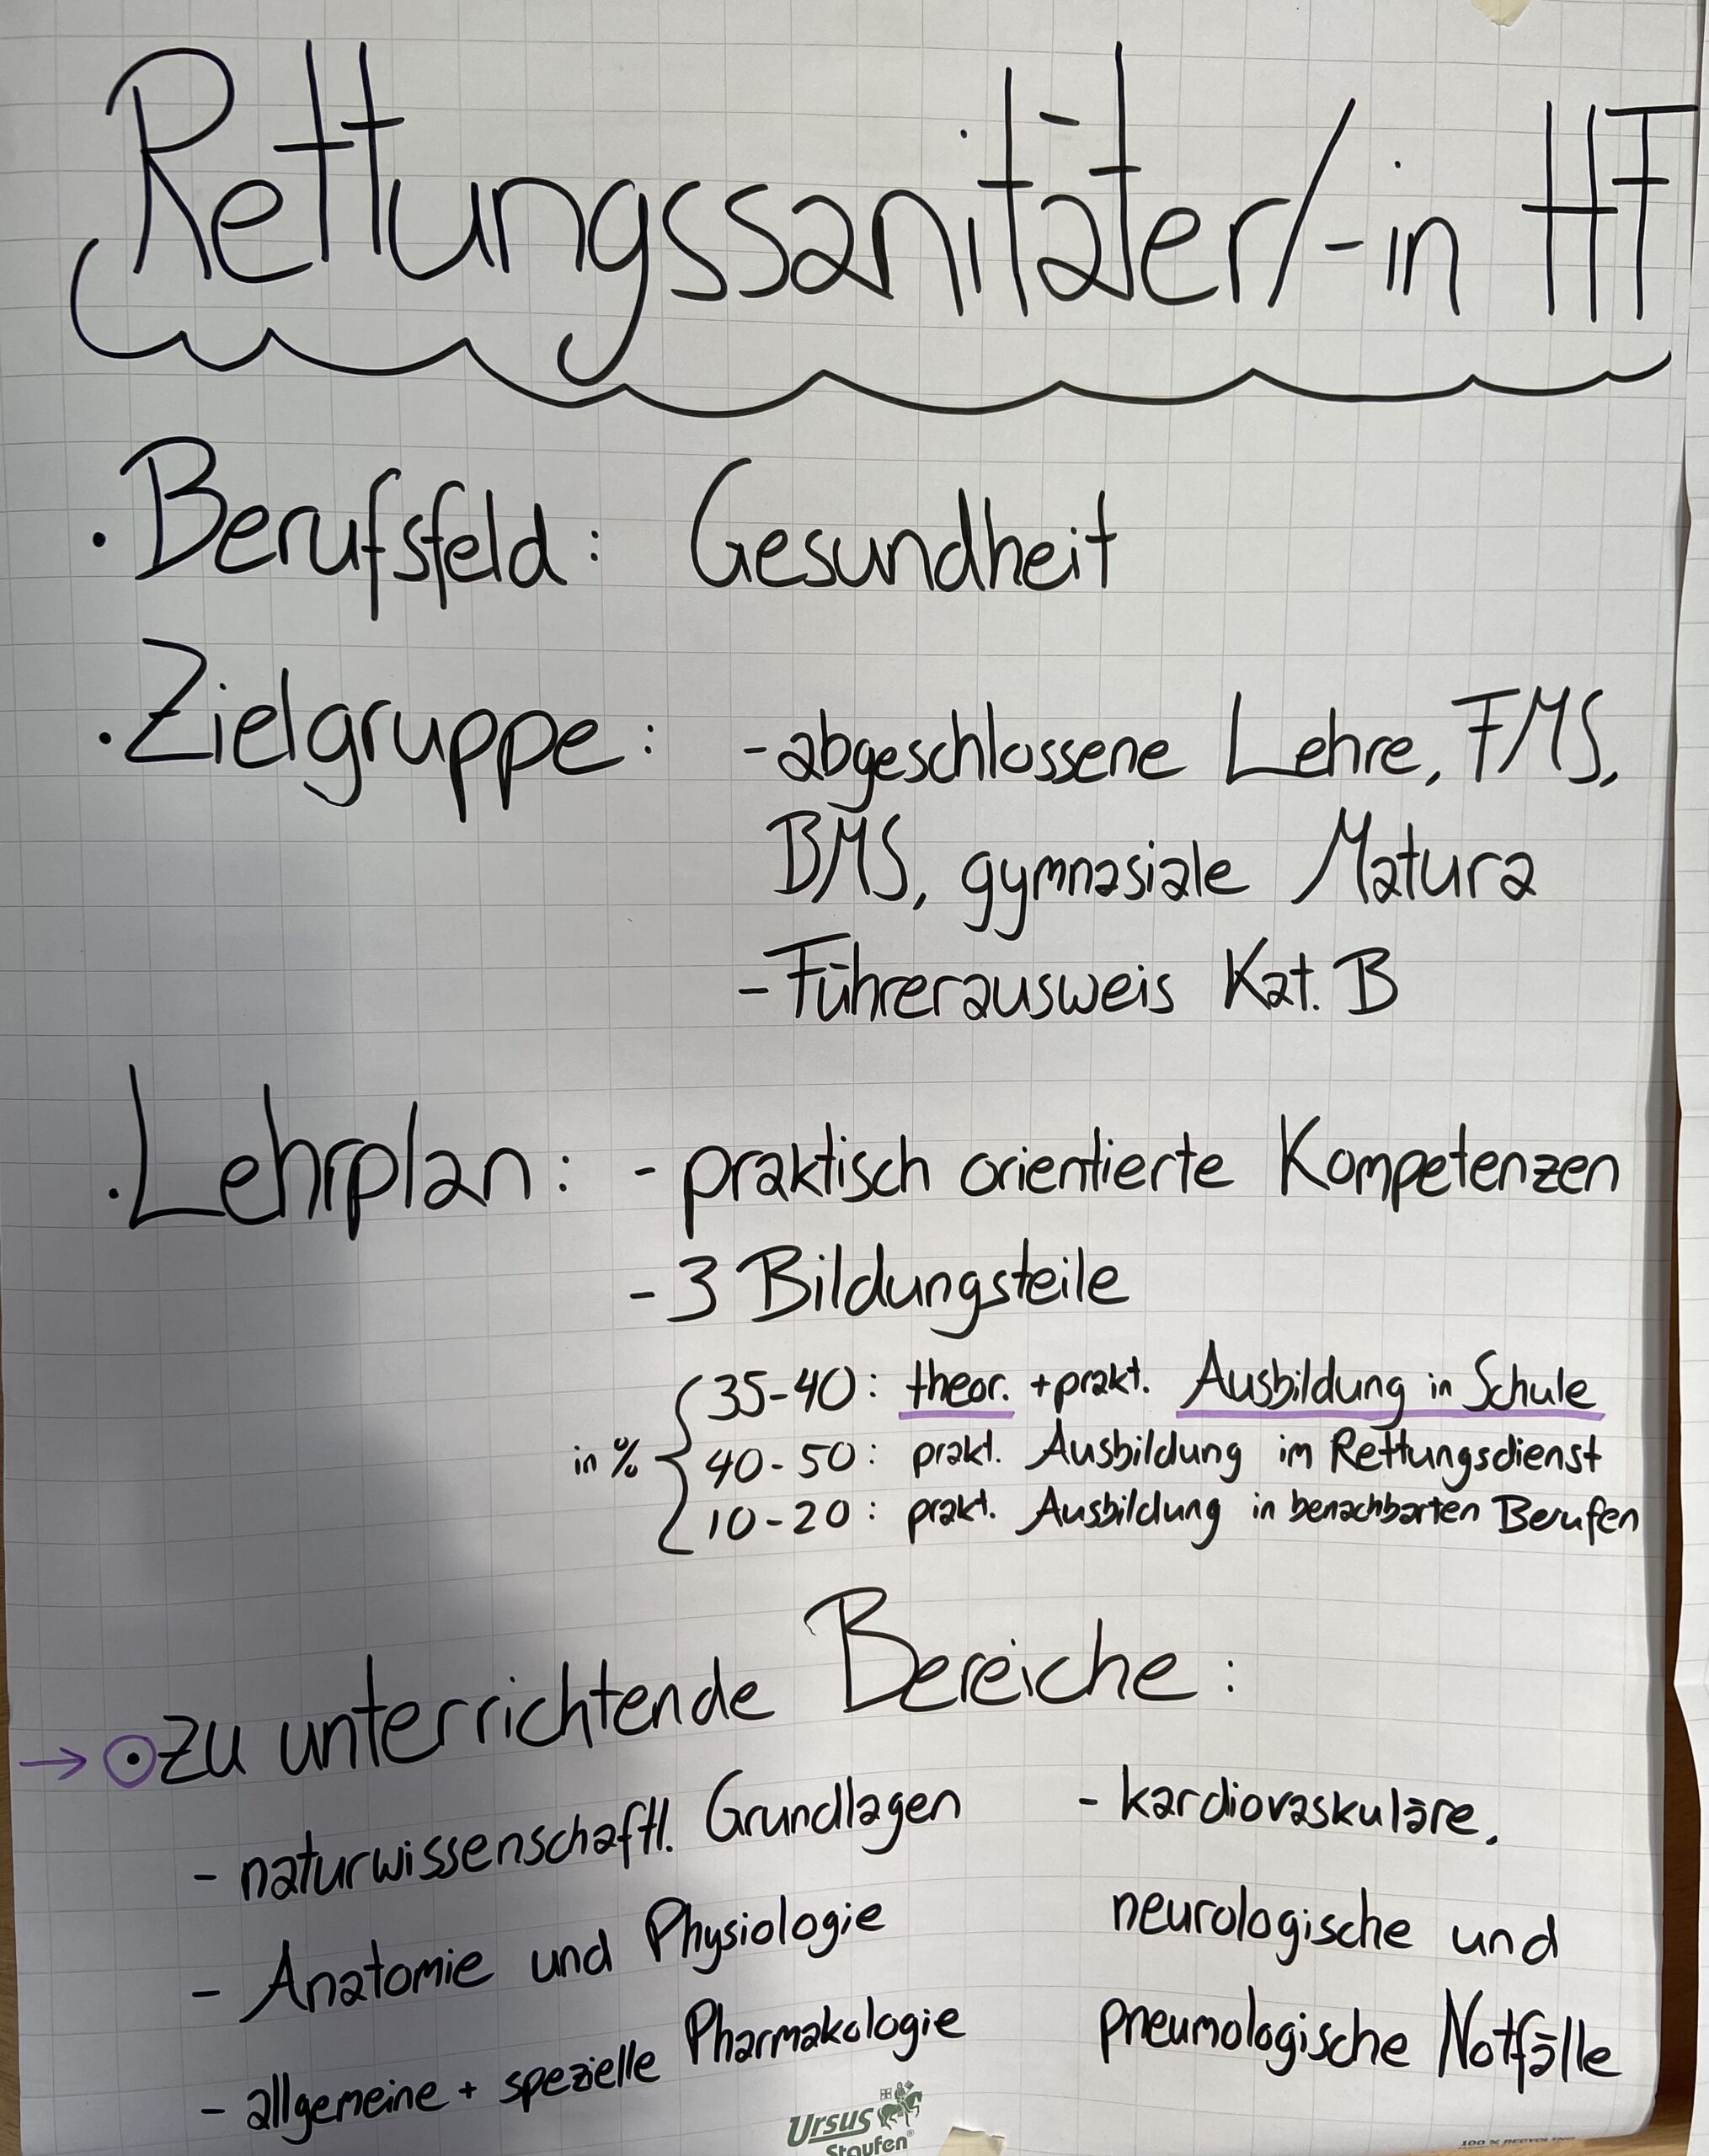 Rettungssanitäter/-in HF
• Berufsfeld: Gesundheit
• Zielgruppe: - abgeschlossene Lehre, FMS,
BMS, gymnasiale Matura
- Führerausweis Kat. B
• Lehrplan: - praktisch orientierte Kompetenzen
- 3 Bildungsteile
in % { 35-40: theor. + prakt. Ausbildung in Schule
40-50: prakt. Ausbildung im Rettungsdienst
10-20: prakt. Ausbildung in benachbarten Berufen
→ • zu unterrichtende Bereiche:
- naturwissenschaftl. Grundlagen
- Anatomie und Physiologie
- allgemeine + spezielle Pharmakologie
- kardiovaskuläre,
neurologische und
pneumologische Notfälle
Ursus
Staufen®